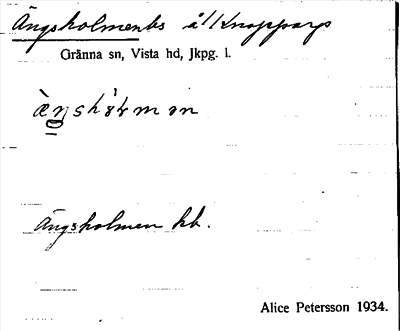 Ängsholmen hs å/Knapparp
Gränna sn, Vista hd, Jkpg. l.
Ängsholmen hb.
Alice Petersson 1934.